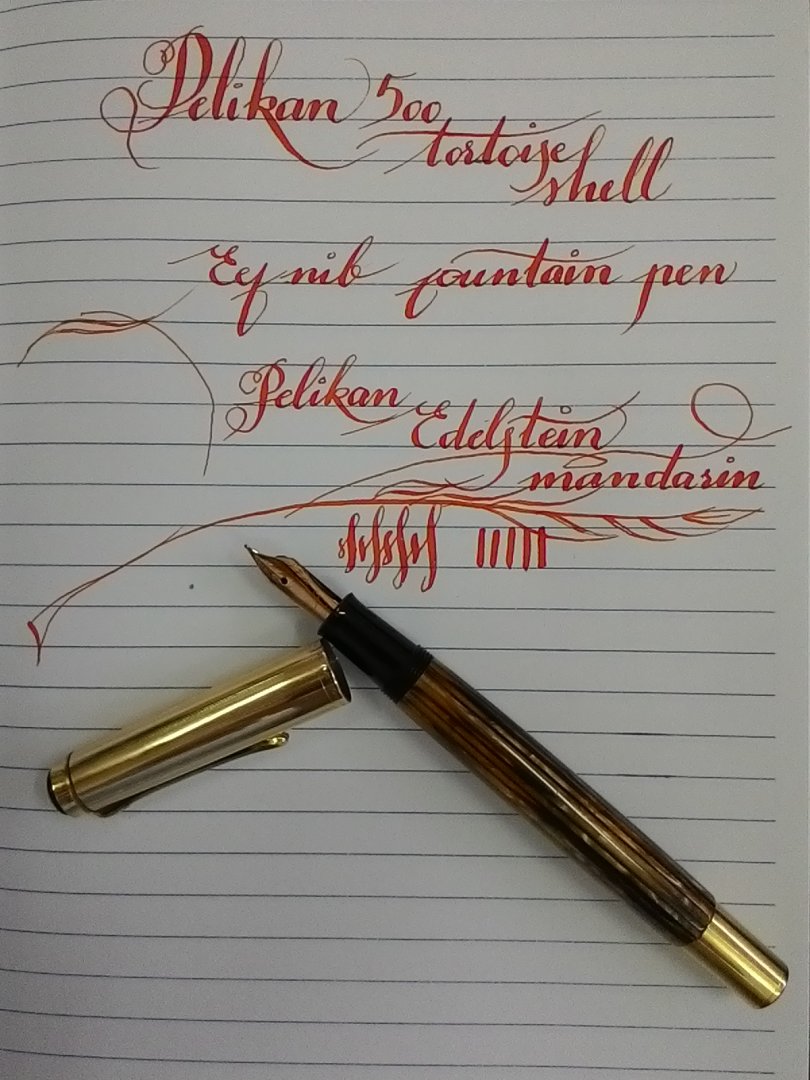 Pelikan 500
tortoise
shell
Ef nib fountain pen
Pelikan
Edelstein
mandarin